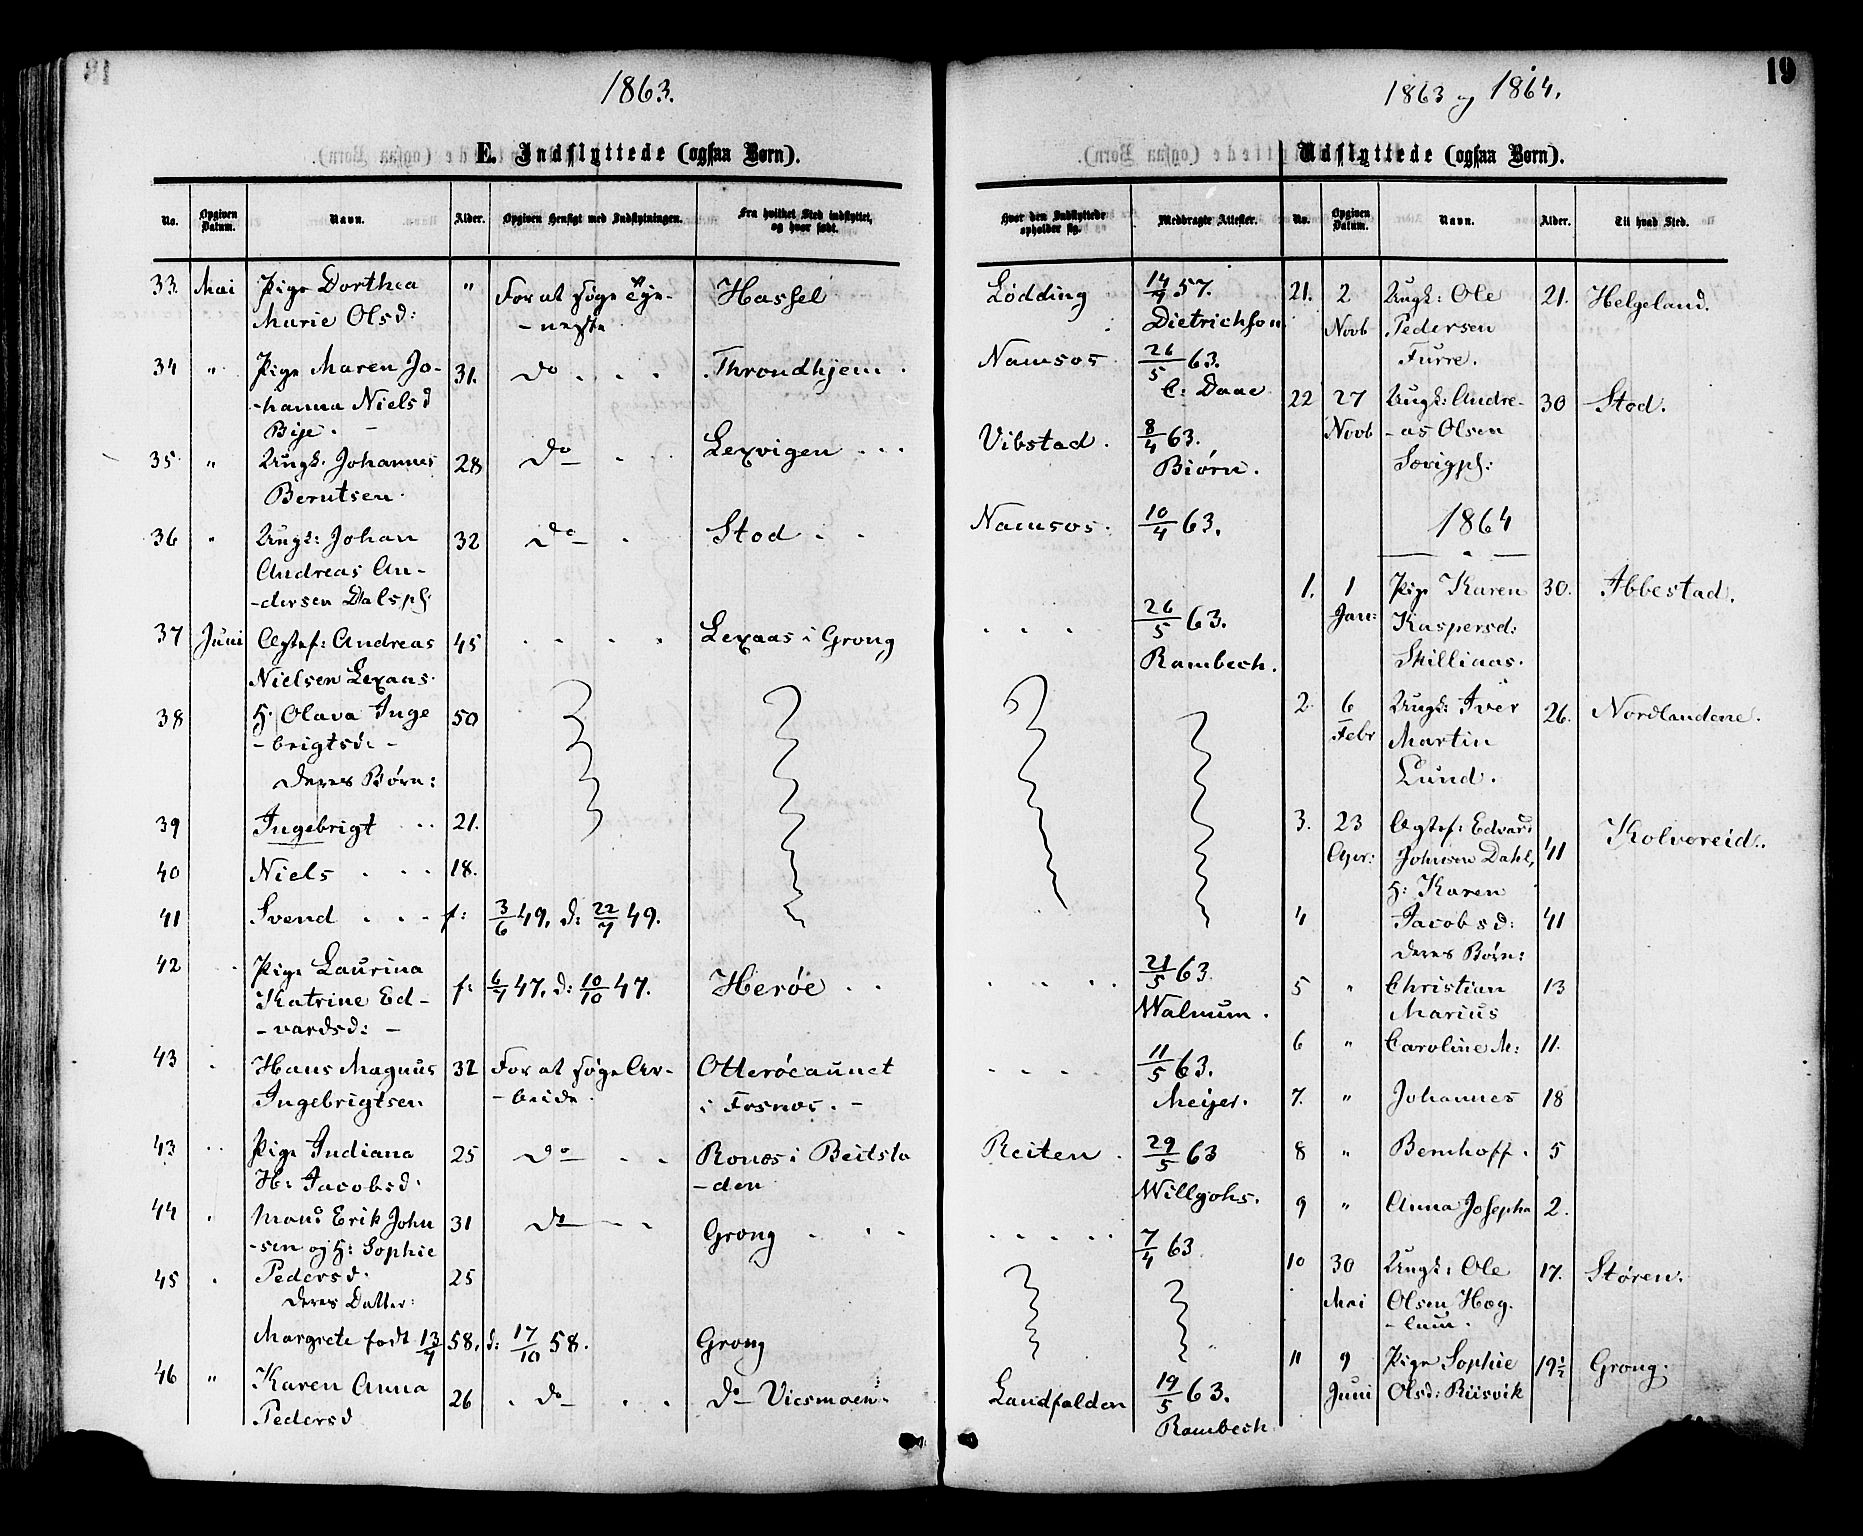 1863.
E. Indflyttede (ogsaa Børn).
No.
Opgiven Datum.
Navn.
Alder.
Opgiven Hensigt med Indflytningen.
Fra hvilket Sted indflyttet, og hvor født.
33. Mai Pige Dorthea " For at søge Tje- Hassel
Marie Olsd: -neste
34 " Pige Maren Jo- 31. do Throndhjem
-hanna Nielsd
35 " Ungk. Johannes 28 do Lexvigen
Berntsen
36 " Ungk: Johan 32 do Stod
Andreas An-
-dersen Dalspl:
37 Juni Ægtef: Andreas 45 Lexaas i Grong
Nielsen Lexaas
38 H. Olava Inge 50
-brigtsd: -
deres Børn:
39 Ingebrigt 21.
40 Niels 18.
41 Svend f: 3/6 49. d: 22/7 49.
42 Pige Laurina f: 6/7 47. d: 10/10 47. Herøe
Katrine Ed-
-vardsd: -
43 Hans Magnus 32 For at søge Ar- Otterøeaunet
Ingebrigtsen -beide i Fosnæs. -
43 Pige Indiana 25 do Ronæs i Beitsta
H: Jacobsd. -den
44 Mand Erik John 31 do Grong
-sen og H: Sophie
45 Pedersd. 25
deres Datter:
Margrete født 13/7 58. d: 17/10 58. Grong
46 " Karen Anna 26 do do Viesmoen
Pedersd
19
1863 og 1864.
Udflyttede (ogsaa Børn).
Hvor den Indflyttede opholder sig.
Medbragte Attester.
No.
Opgiven Datum.
Navn.
Alder.
Til hvad Sted.
Lødding 14/7 57.
Dietrichson
Namsos 26/5 63.
C: Daae
Vibstad 8/4 63.
Biørn.
Namsos 10/4 63.
26/5 63.
Rambech.
21/5 63
Walnum.
11/5 63.
Meijer.
Reiten 29/5 63
Willyohs.
7/4 63
Landfalden 19/5 63.
Rambech
21. 2 Ungk: Ole 21. Helgeland.
Novb Pedersen
Furre.
22 27 Ungk: Andre- 30 Stod.
Novb -as Olsen
1864
1. 1 Pige Karen 30. Ibbestad.
Jan: Kaspersd:
Skilliaas.
2. 6 Ungk: Iver 26. Nordlandene.
Febr Martin
Lund.
3. 23 Ægtef: Edvard Kolvereid.
Apr: Johnsen Dahl, 41
H: Karen
4 Jacobsd: 41
deres Børn:
5 " Christian 13
Marius
6 " Caroline M: 11.
7. " Johannes 18
8 " Bernhoff. 5
9 " Anna Josepha 2.
10 30 Ungk: Ole 17. Støren.
Mai Olsen Hog-
-lum.
11 9 Pige Sophie 19½ Grong.
Juni Olsd: Riisvik